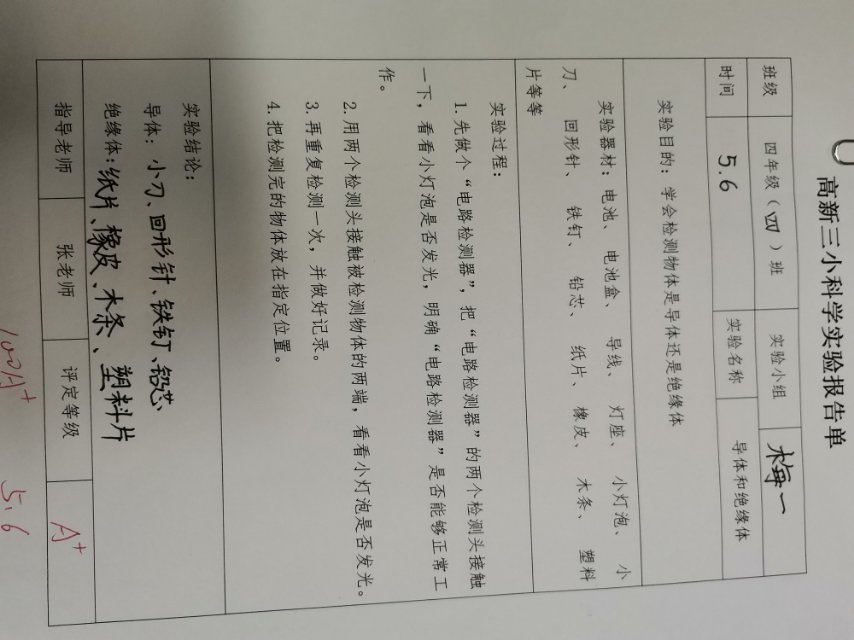 高新三小科学实验报告单
班级 四年级（四）班 实验小组 梅一
时间 5.6 实验名称 导体和绝缘体
实验目的：学会检测物体是导体还是绝缘体
实验器材：电池、电池盒、导线、灯座、小灯泡、小
刀、回形针、铁钉、铅芯、纸片、橡皮、木条、塑料
片等等
实验过程：
1. 先做个“电路检测器”，把“电路检测器”的两个检测头接触
一下，看看小灯泡是否发光，明确“电路检测器”是否能够正常工
作。
2. 用两个检测头接触被检测物体的两端，看看小灯泡是否发光。
3. 再重复检测一次，并做好记录。
4. 把检测完的物体放在指定位置。
实验结论：
导体：小刀、回形针、铁钉、铅芯、
绝缘体：纸片、橡皮、木条、塑料片
指导老师 张老师 评定等级 A+
100A+ 5.6